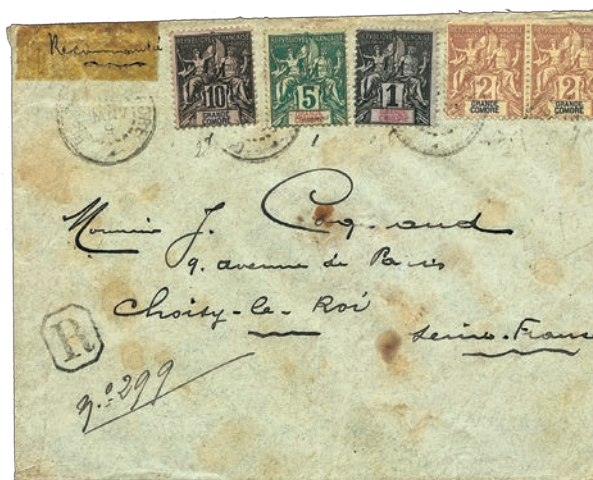 Recommandé
REPUBLIQUE FRANÇAISE
10
GRANDE
COMORE
REPUBLIQUE FRANÇAISE
5
REPUBLIQUE FRANÇAISE
1
REPUBLIQUE FRANÇAISE
2
GRANDE
COMORE
REPUBLIQUE FRANÇAISE
2
GRANDE
COMORE
Monsieur J.
9. avenue de Paris
Choisy-le-Roi
Seine-France
R
n.º 299